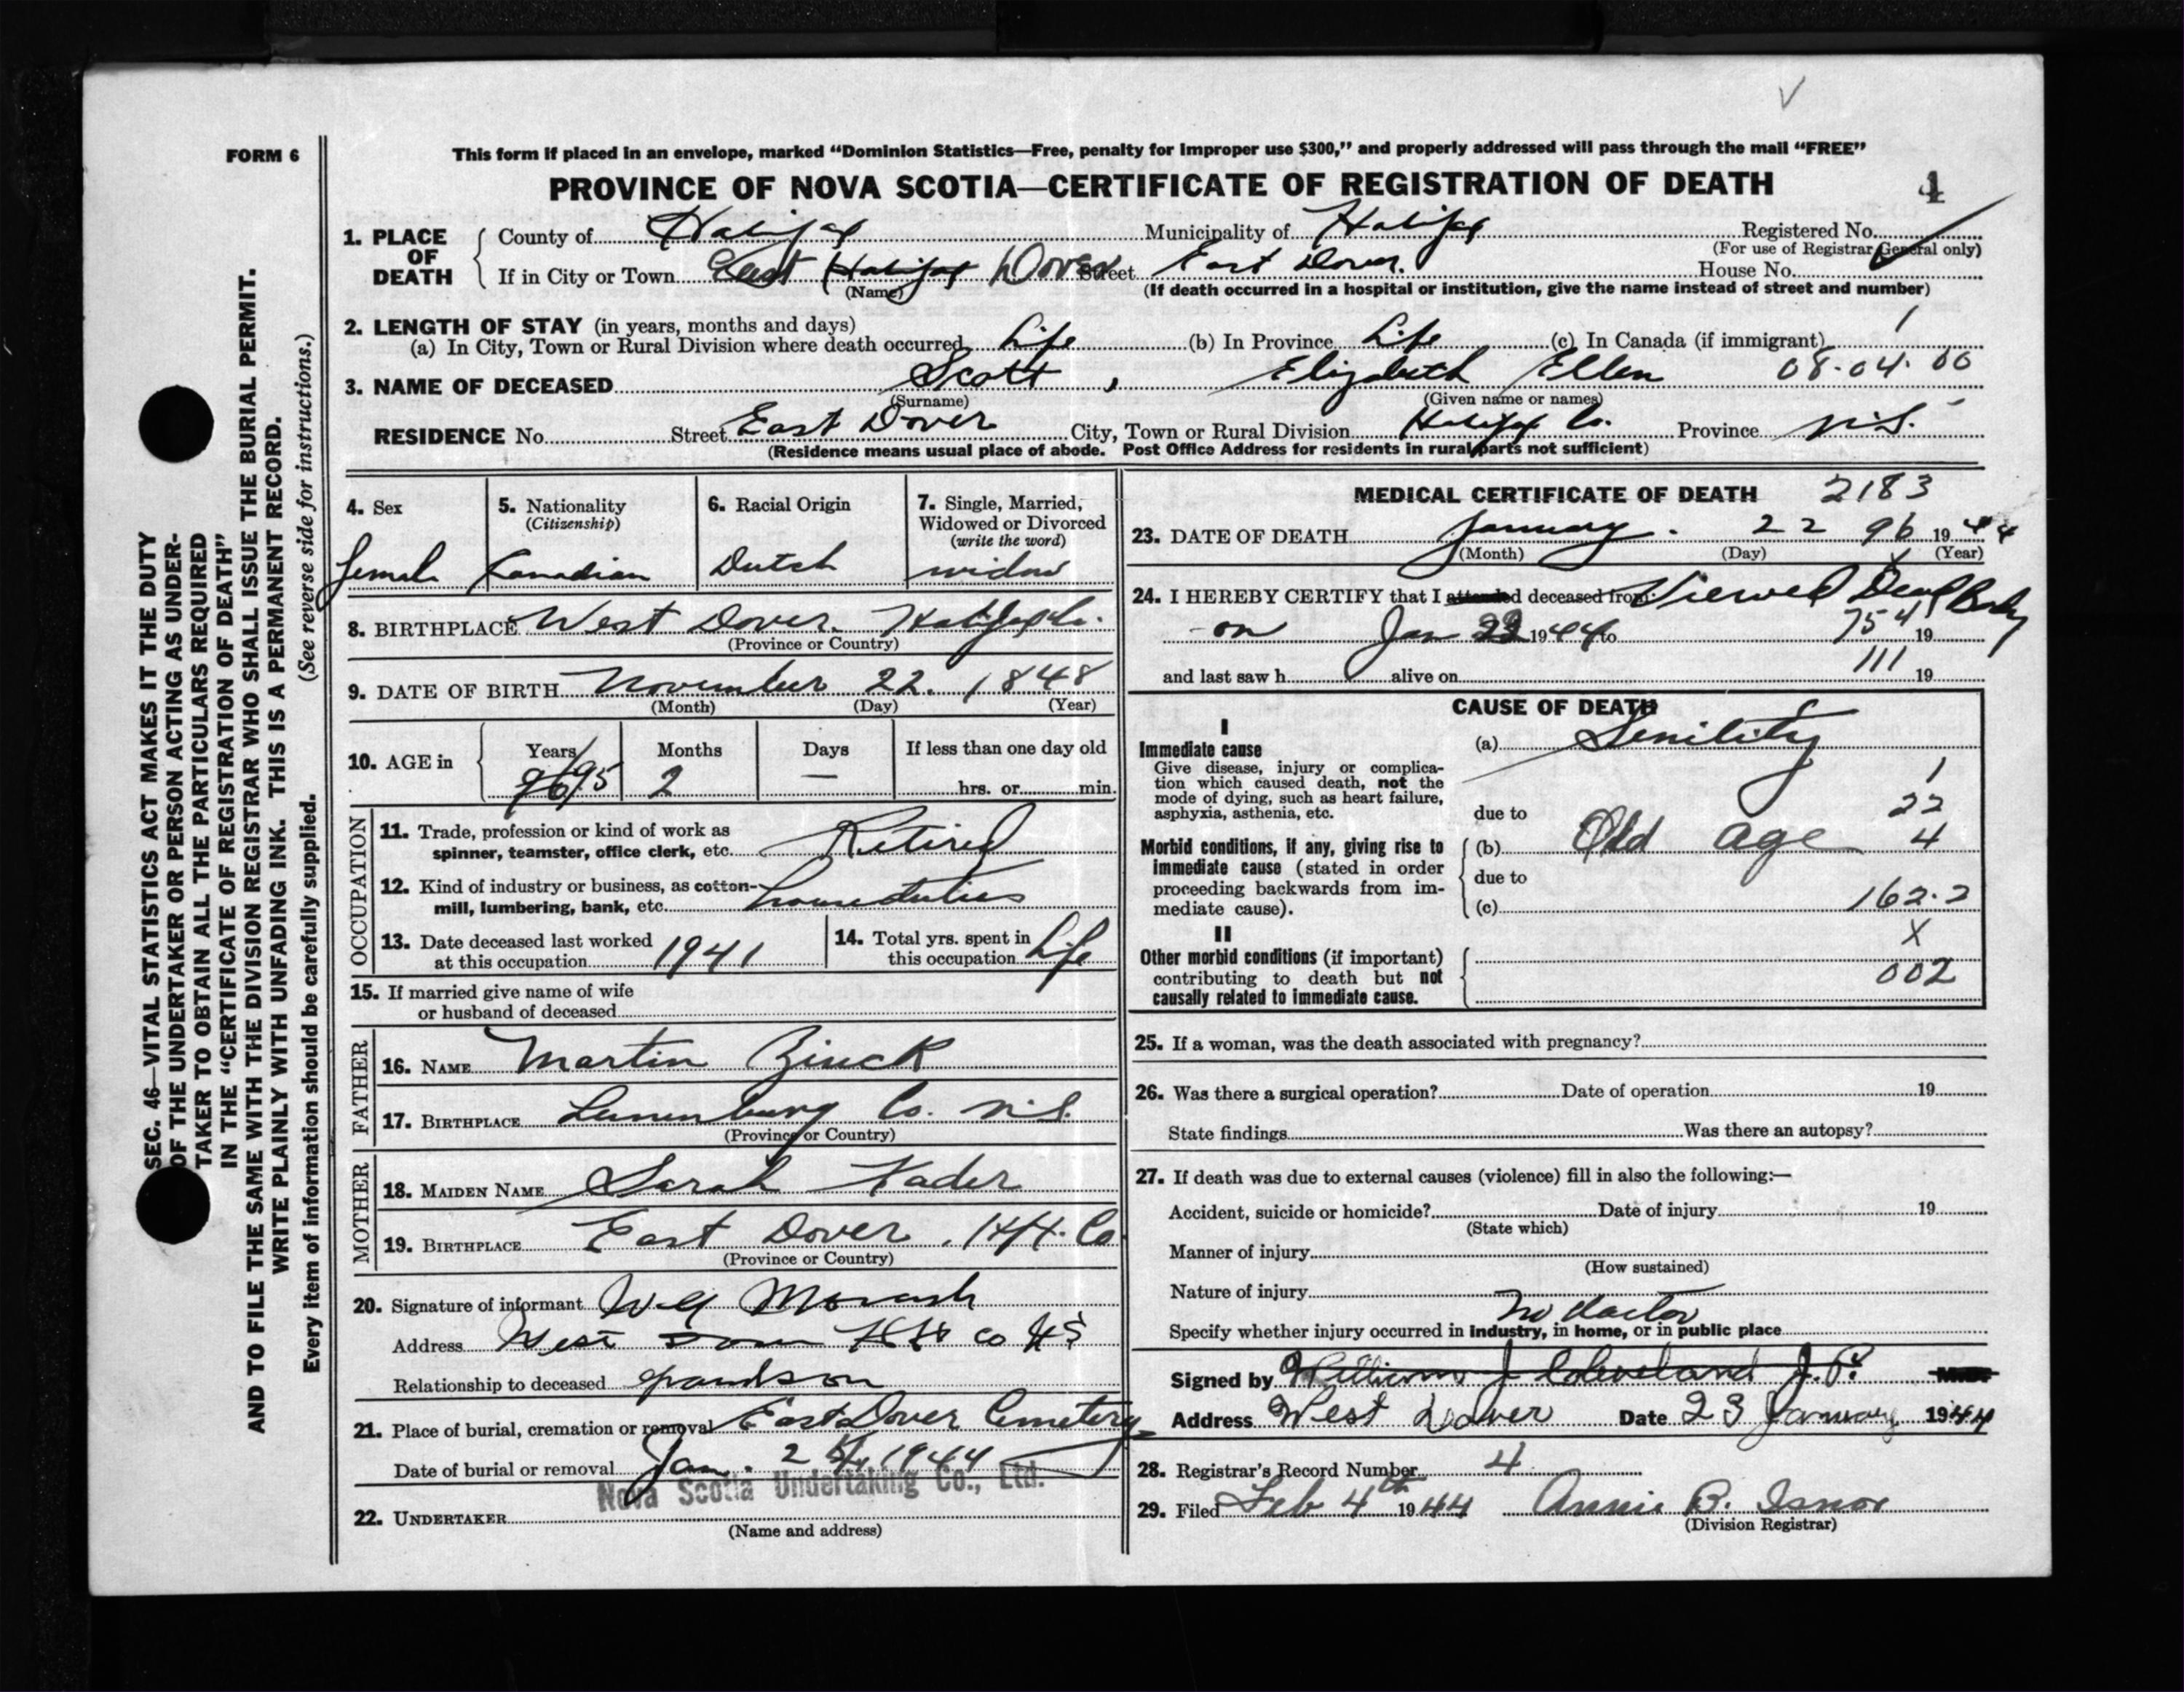 FORM 6
This form if placed in an envelope, marked “Dominion Statistics—Free, penalty for improper use $300,” and properly addressed will pass through the mail “FREE”
PROVINCE OF NOVA SCOTIA—CERTIFICATE OF REGISTRATION OF DEATH
1. PLACE OF DEATH
County of Halifax Municipality of Halifax Registered No.
(For use of Registrar General only)
If in City or Town East Halifax Dover Street East Dover. House No.
(Name) (If death occurred in a hospital or institution, give the name instead of street and number)
2. LENGTH OF STAY (in years, months and days) 1
(a) In City, Town or Rural Division where death occurred Life (b) In Province Life (c) In Canada (if immigrant)
3. NAME OF DECEASED Scott, Elizabeth Ellen 08-04-00
(Surname) (Given name or names)
RESIDENCE No. Street East Dover City, Town or Rural Division Halifax Co. Province N.S.
(Residence means usual place of abode. Post Office Address for residents in rural parts not sufficient)
4. Sex
female
5. Nationality
(Citizenship)
Canadian
6. Racial Origin
Dutch
7. Single, Married,
Widowed or Divorced
(write the word)
widow
8. BIRTHPLACE West Dover. Halifax Co.
(Province or Country)
9. DATE OF BIRTH November 22. 1848
(Month) (Day) (Year)
10. AGE in
Years Months Days If less than one day old
96/95 2 — hrs. or min.
OCCUPATION
11. Trade, profession or kind of work as
spinner, teamster, office clerk, etc. Retired
12. Kind of industry or business, as cotton-
mill, lumbering, bank, etc. home duties
13. Date deceased last worked
at this occupation 1941
14. Total yrs. spent in
this occupation Life
15. If married give name of wife
or husband of deceased
FATHER
16. NAME Martin Zinck
17. BIRTHPLACE Lunenburg Co. N.S.
(Province or Country)
MOTHER
18. MAIDEN NAME Sarah Kader
19. BIRTHPLACE East Dover. Hfx. Co.
(Province or Country)
20. Signature of informant Morash
Address West Co NS
Relationship to deceased grandson
21. Place of burial, cremation or removal East Dover Cemetery
Date of burial or removal Jan. 1944
Nova Scotia Undertaking Co., Ltd.
22. UNDERTAKER
(Name and address)
MEDICAL CERTIFICATE OF DEATH 2183
23. DATE OF DEATH January. 22 96 1944
(Month) (Day) (Year)
24. I HEREBY CERTIFY that I attended deceased from: Viewed Dead Body
on Jan 1944 to 754 19
and last saw h alive on 111 19
CAUSE OF DEATH
I
Immediate cause (a) Senility
Give disease, injury or complica-
tion which caused death, not the
mode of dying, such as heart failure,
asphyxia, asthenia, etc.
1
due to 22
Morbid conditions, if any, giving rise to
immediate cause (stated in order
proceeding backwards from im-
mediate cause).
(b) Old age 4
due to
(c) 162.2
II
X
Other morbid conditions (if important)
contributing to death but not
causally related to immediate cause.
002
25. If a woman, was the death associated with pregnancy?
26. Was there a surgical operation? Date of operation 19
State findings Was there an autopsy?
27. If death was due to external causes (violence) fill in also the following:—
Accident, suicide or homicide? Date of injury 19
(State which)
Manner of injury
(How sustained)
Nature of injury
no doctor
Specify whether injury occurred in industry, in home, or in public place
Signed by William J Cleveland J.P. M.D.
Address West Dover Date 23 January 1944
28. Registrar's Record Number 4
29. Filed Feb 4th 1944 Annie B. Isnor
(Division Registrar)
SEC. 46—VITAL STATISTICS ACT MAKES IT THE DUTY
OF THE UNDERTAKER OR PERSON ACTING AS UNDER-
TAKER TO OBTAIN ALL THE PARTICULARS REQUIRED
IN THE “CERTIFICATE OF REGISTRATION OF DEATH”
AND TO FILE THE SAME WITH THE DIVISION REGISTRAR WHO SHALL ISSUE THE BURIAL PERMIT.
WRITE PLAINLY WITH UNFADING INK. THIS IS A PERMANENT RECORD.
Every item of information should be carefully supplied. (See reverse side for instructions.)